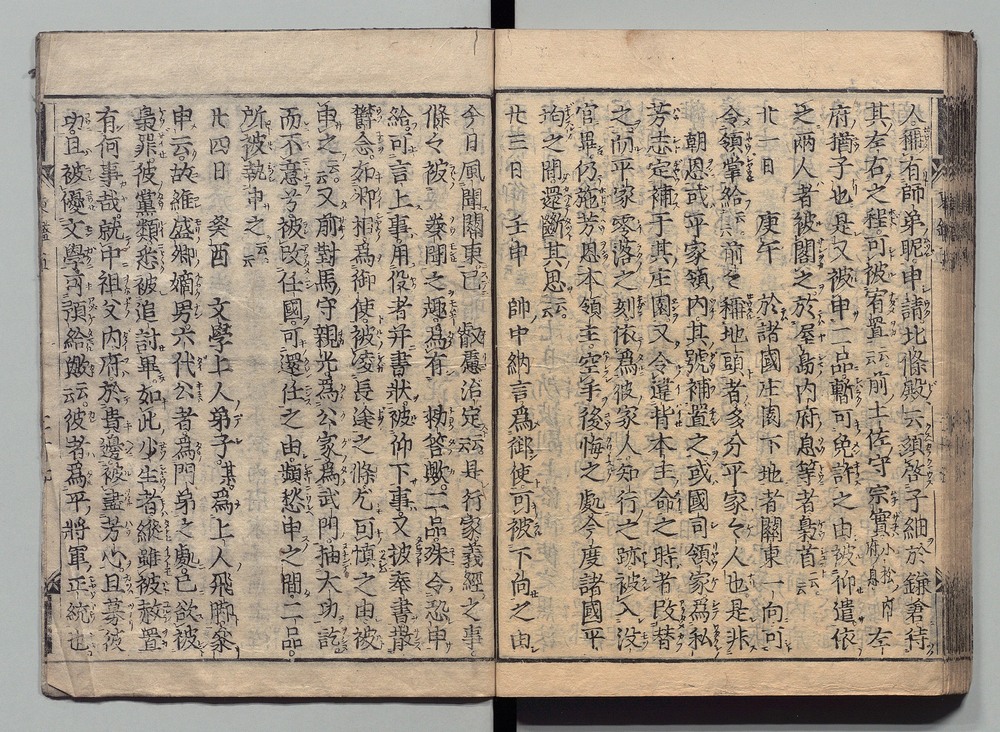 人稱有師弟昵申請北條殿云須啓子細於鎌倉待
其左右之程可被宥置云云前土佐守宗實小松内府息左
府猶子也是又被申二品暫可免許之由被仰遣依
之兩人者被閣之於屋島内府息等者梟首云云
廿一日 庚午 於諸國庄園下地者關東一向可
令領掌給云云前々稱地頭者多分平家々人也是非
朝恩或平家領内其號補置之或國司領家爲私
芳志定補于其庄園又令違背本主命之時者改替
之而平家零落之刻依爲彼家人知行之跡被入没
官畢仍施芳恩本領主空手後悔之處今度諸國平
均之間還斷其思云云
廿三日 壬申 帥中納言爲御使可被下向之由
今日風聞關東已 叡慮治定云云是行家義經之事
條々被 奉聞之趣爲有 勅答歟二品殊令恐申
給可言上事用役者并書状被仰下事又被奉書散
欝念如卿相爲御使被凌長途之條尤可慎之由被
申之云云又前對馬守親光爲公家爲武門抽大功訖
而不意兮被改任國可還任之由頻愁申之間二品
所被執申之云云
廿四日 癸酉 文學上人弟子某爲上人飛脚參
申云故維盛卿嫡男六代公者爲門弟之處已欲被
梟罪彼黨類悉被追討畢如此少生者縱雖被赦置
有何事哉就中祖父内府於貴邊被盡芳心且募彼
功且被優文學可預給歟云云彼者爲平將軍正統也